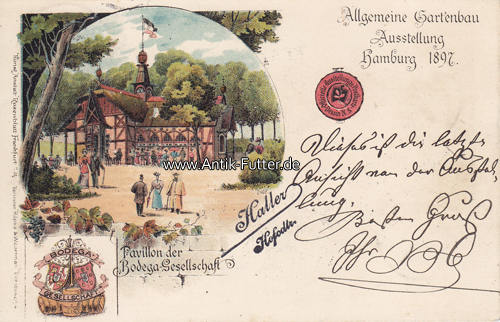 Allgemeine Gartenbau
Ausstellung
Hamburg 1897.
www.Antik-Futter.de
Dieses ist die letzte
Ansicht von der Ausstel-
lung.
Besten Gruß
Ihr
Haller
Pavillon der
Bodega-Gesellschaft
BODEGA
GESELLSCHAFT